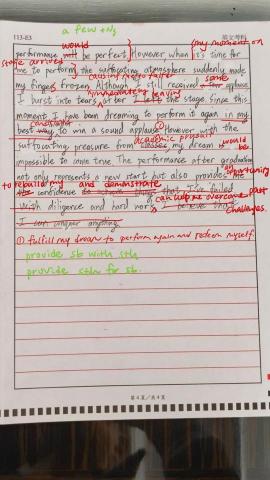 a few + Ns
113-E3
英文考科
would
my moment on
performance will be perfect. However when it's time for
stage arrives
me to perform, the suffocating atmosphere suddenly made
causing me to falter
some
my fingers frozen. Although I still received applause
immediately leaving
I burst into tears after I left the stage. Since this
moment, I have been dreaming to perform it again in my
best way to win a sound applause. However with the
academic pressure
would
suffocating pressure from classes, my dream is
be
impossible to come true. The performance after graduation
not only represents a new start but also provides me
to rebuild my and demonstrate
the confidence that I've failed
can help me overcome past
With diligence and hard work, I believe that
challenges.
I can conquer anything.
① fulfill my dream to perform again and redeem myself.
provide sb with sth
provide sth for sb.
第4頁/共4頁